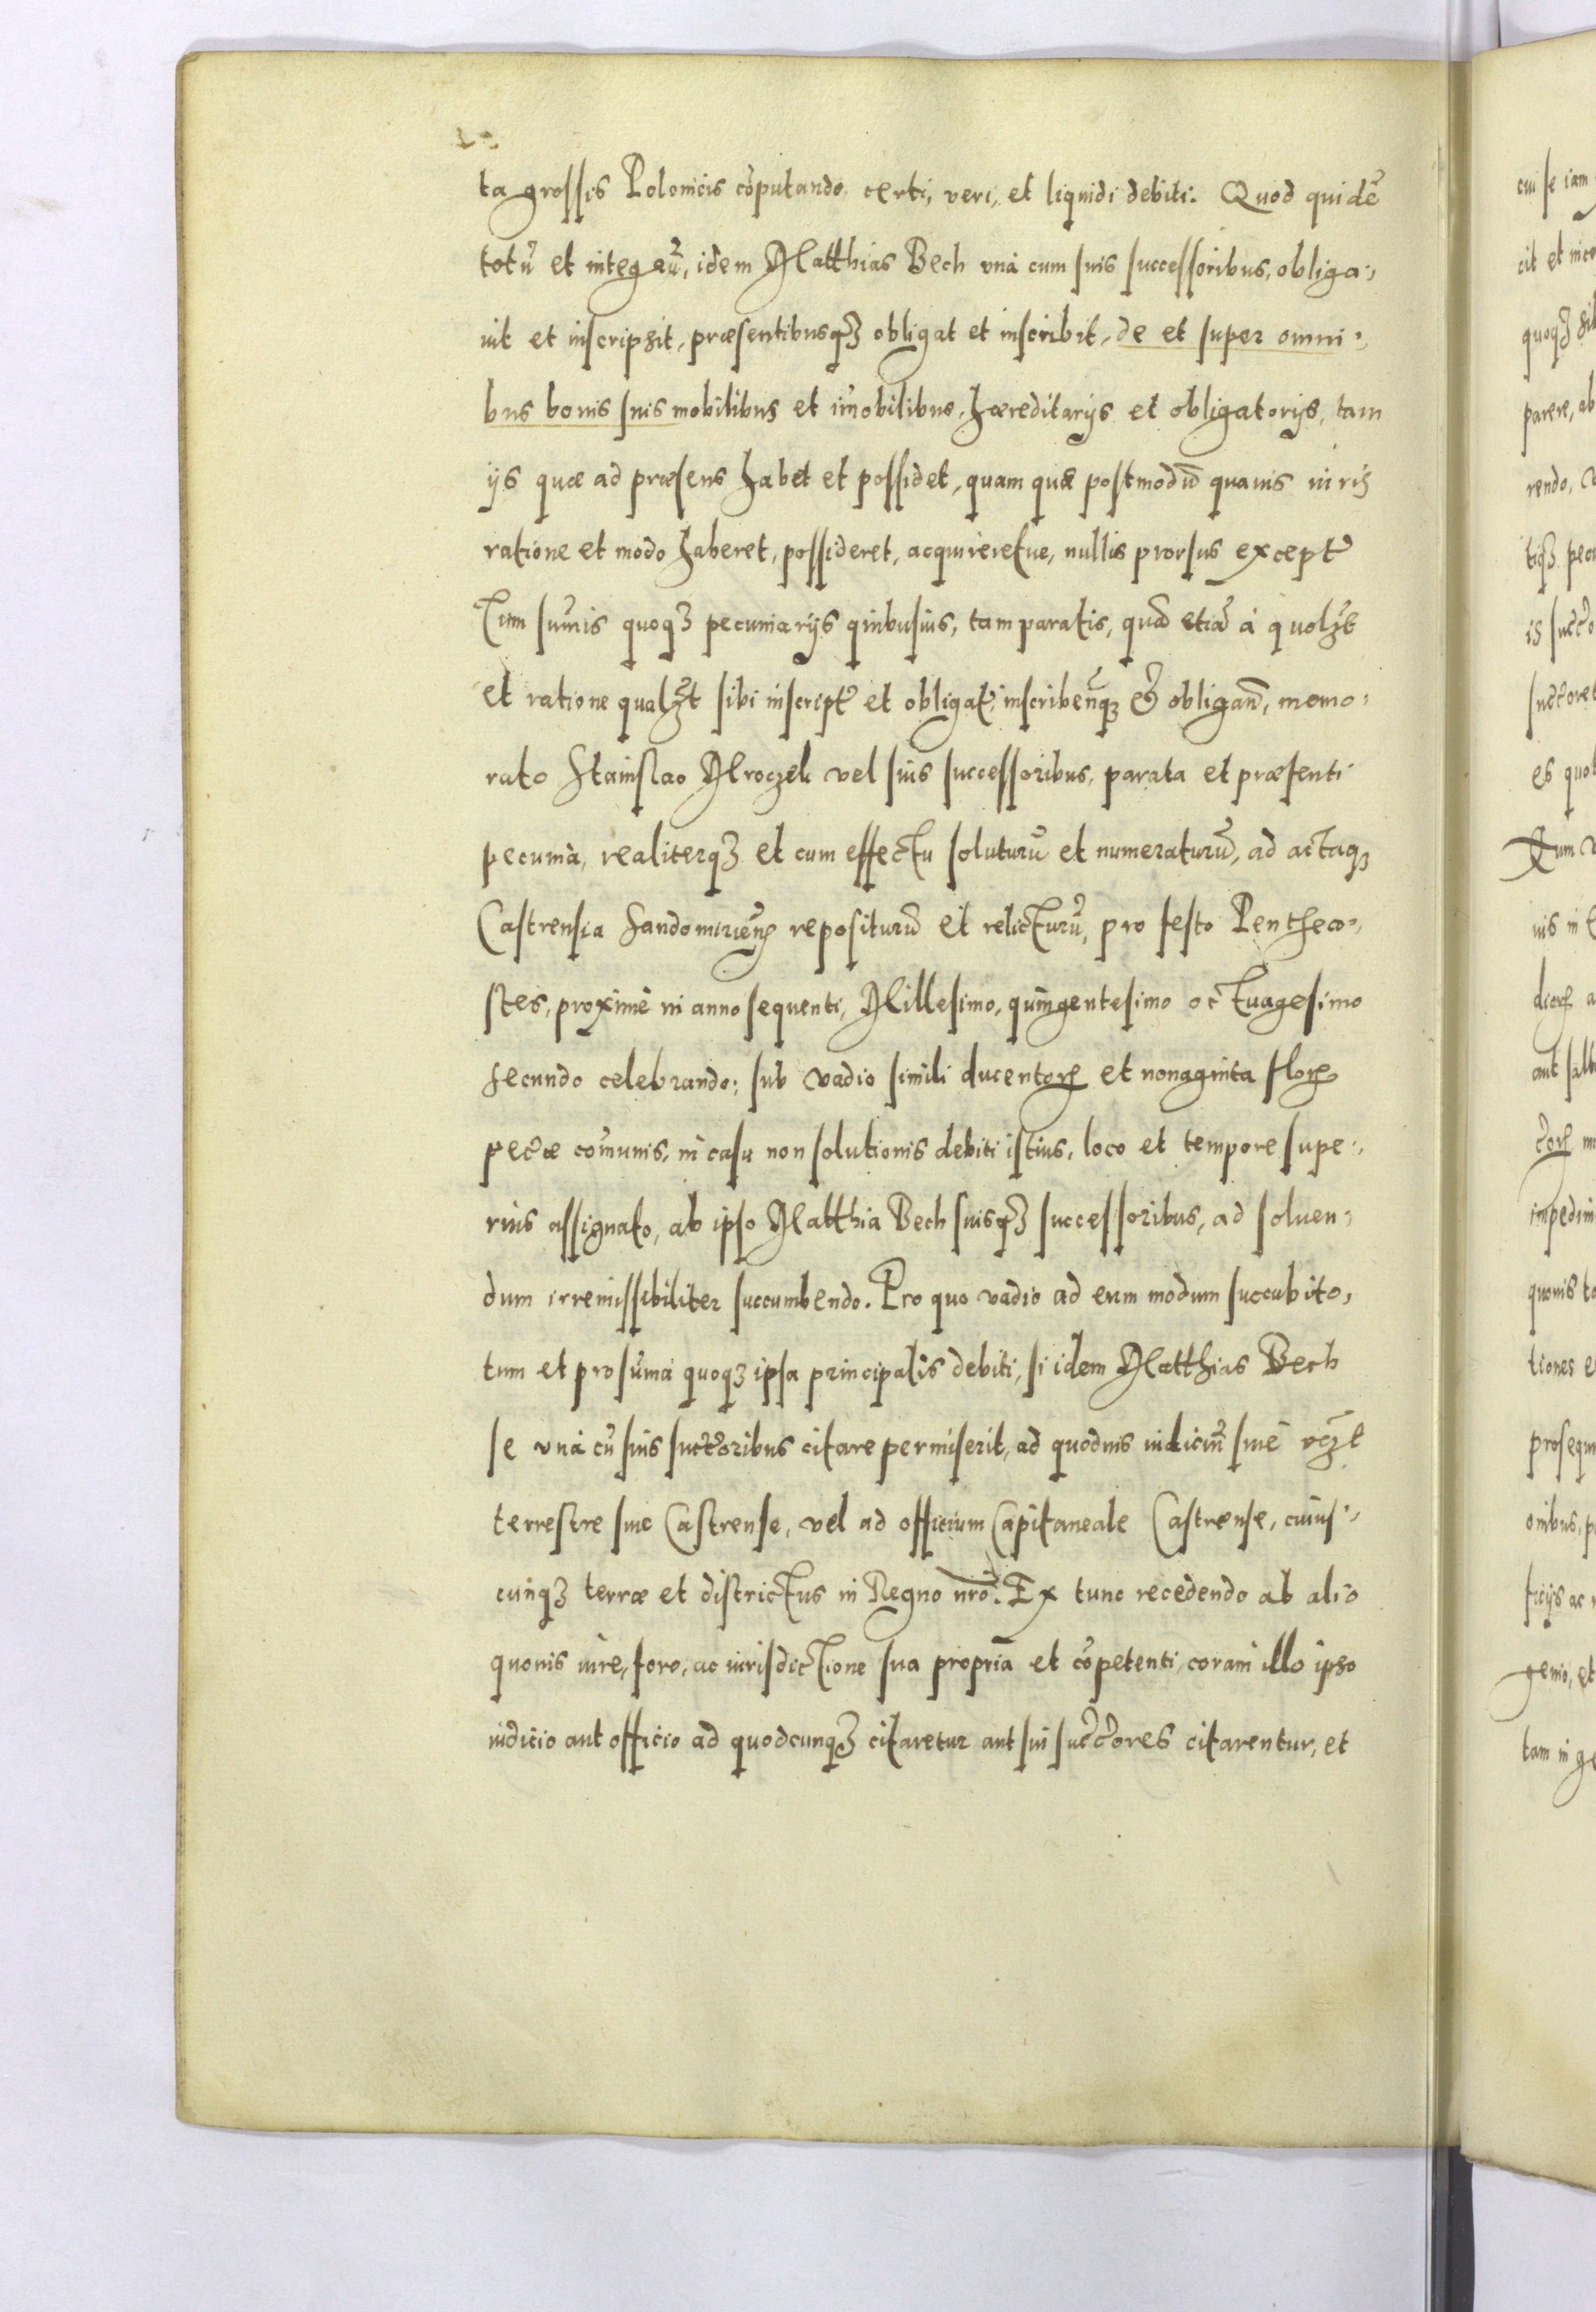 ta grossis Polonicis cõputando, certi, veri, et liquidi debiti. Quod quidẽ
totũ et integrũ, idem Matthias Bech vnà cum suis successoribus, obliga-
uit et inscripsit, præsentibusqꝫ obligat et inscribit, de et super omni-
bus bonis suis mobilibus et im̃obilibus, hæreditarijs et obligatorijs, tam
ijs quæ ad præsens habet et possidet, quam quæ postmodũ quauis iuris
ratione et modo haberet, possideret, acquireretue, nullis prorsus except̃
Tum sum̃is quoqꝫ pecuniarijs quibusuis, tam paratis, quã etiã à quolꝫt
et ratione qualꝫt sibi inscript̃ et obligat̃, inscribeñqꝫ & obligañ, memo-
rato Stanislao Mroczek vel suis successoribus, parata et præsenti
pecunia, realiterqꝫ et cum effectu soluturũ et numeraturũ, ad actaqꝫ
Castrensia Sandomirieñ repositurũ et relicturũ, pro festo Pentheco-
stes, proximè in anno sequenti, Millesimo, quingentesimo octuagesimo
secundo celebrando; sub vadio simili ducentorꝝ et nonaginta florꝝ
pec̃æ com̃unis, in casu non solutionis debiti istius, loco et tempore supe-
rius assignato, ab ipso Matthia Bech suisqꝫ successoribus, ad soluen-
dum irremissibiliter succumbendo. Pro quo vadio ad eum modum succubito,
tum et pro sum̃a quoqꝫ ipsa principalis debiti, si idem Matthias Bech
se vnà cũ suis succ̃oribus citare permiserit, ad quoduis iudiciũ siuè vꝫt
terrestre siue Castrense, vel ad officium Capitaneale Castrense, cuius-
cunqꝫ terræ et districtus in Regno nr̃o. Ex tunc recedendo ab alio
quouis iure, foro, ac iurisdictione sua propria et cõpetenti, coram illo ipso
iudicio aut officio ad quodcunqꝫ citaretur aut sui succ̃ores citarentur, et